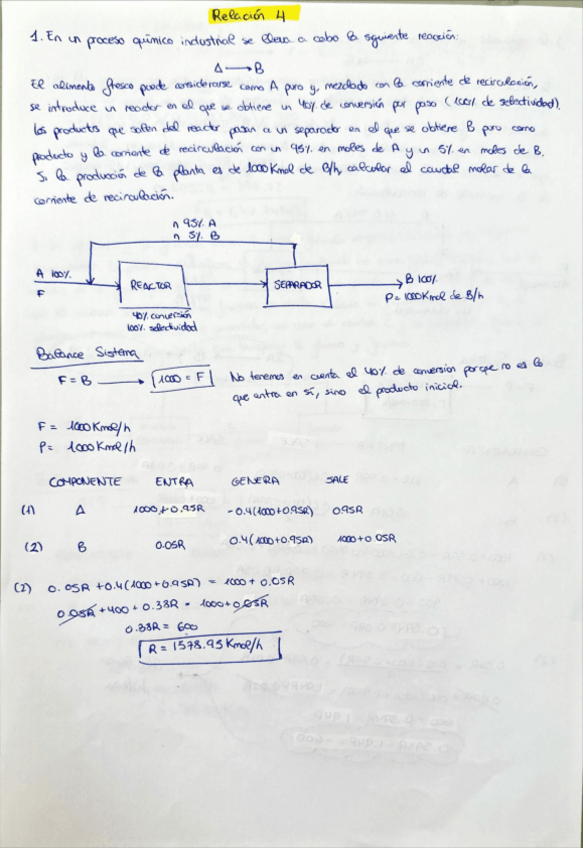 Relación 4
1. En un proceso químico industrial se lleva a cabo la siguiente reacción:
A → B
El alimento fresco puede considerarse como A puro y, mezclado con la corriente de recirculación,
se introduce un reactor en el que se obtiene un 40% de conversión por paso (100% de selectividad).
Los productos que salen del reactor pasan a un separador en el que se obtiene B puro como
producto y la corriente de recirculación con un 95% en moles de A y un 5% en moles de B.
Si la producción de la planta es de 1000 Kmol de B/h, calcular el caudal molar de la
corriente de recirculación.
n 95% A
n 5% B
A 100%
F
REACTOR
SEPARADOR
B 100%
P = 1000 Kmol de B/h
40% conversión
100% selectividad
Balance Sistema
F = B → 1000 = F
No tenemos en cuenta el 40% de conversión porque no es lo
que entra en sí, sino el producto inicial.
F = 1000 Kmol/h
P = 1000 Kmol/h
COMPONENTE ENTRA GENERA SALE
(1) A 1000 + 0.95R -0.4(1000+0.95R) 0.95R
(2) B 0.05R 0.4(1000+0.95R) 1000+0.05R
(2) 0.05R + 0.4(1000+0.95R) = 1000 + 0.05R
0.05R + 400 + 0.38R = 1000 + 0.05R
0.38R = 600
R = 1578.95 Kmol/h